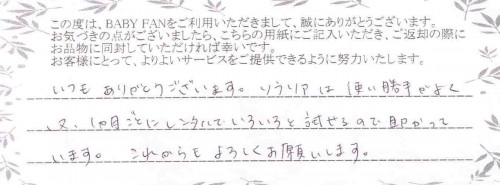 この度は、BABY FANをご利用いただきまして、誠にありがとうございます。
お気づきの点がございましたら、こちらの用紙にご記入いただき、ご返却の際に
お品物に同封していただければ幸いです。
お客様にとって、よりよいサービスをご提供できるように努力いたします。
いつも ありがとうございます。 ソラリアは 使い勝手がよく
又、1ヶ月ごとに レンタルでいろいろと 試せるので 助かって
います。 これからも よろしくお願いします。